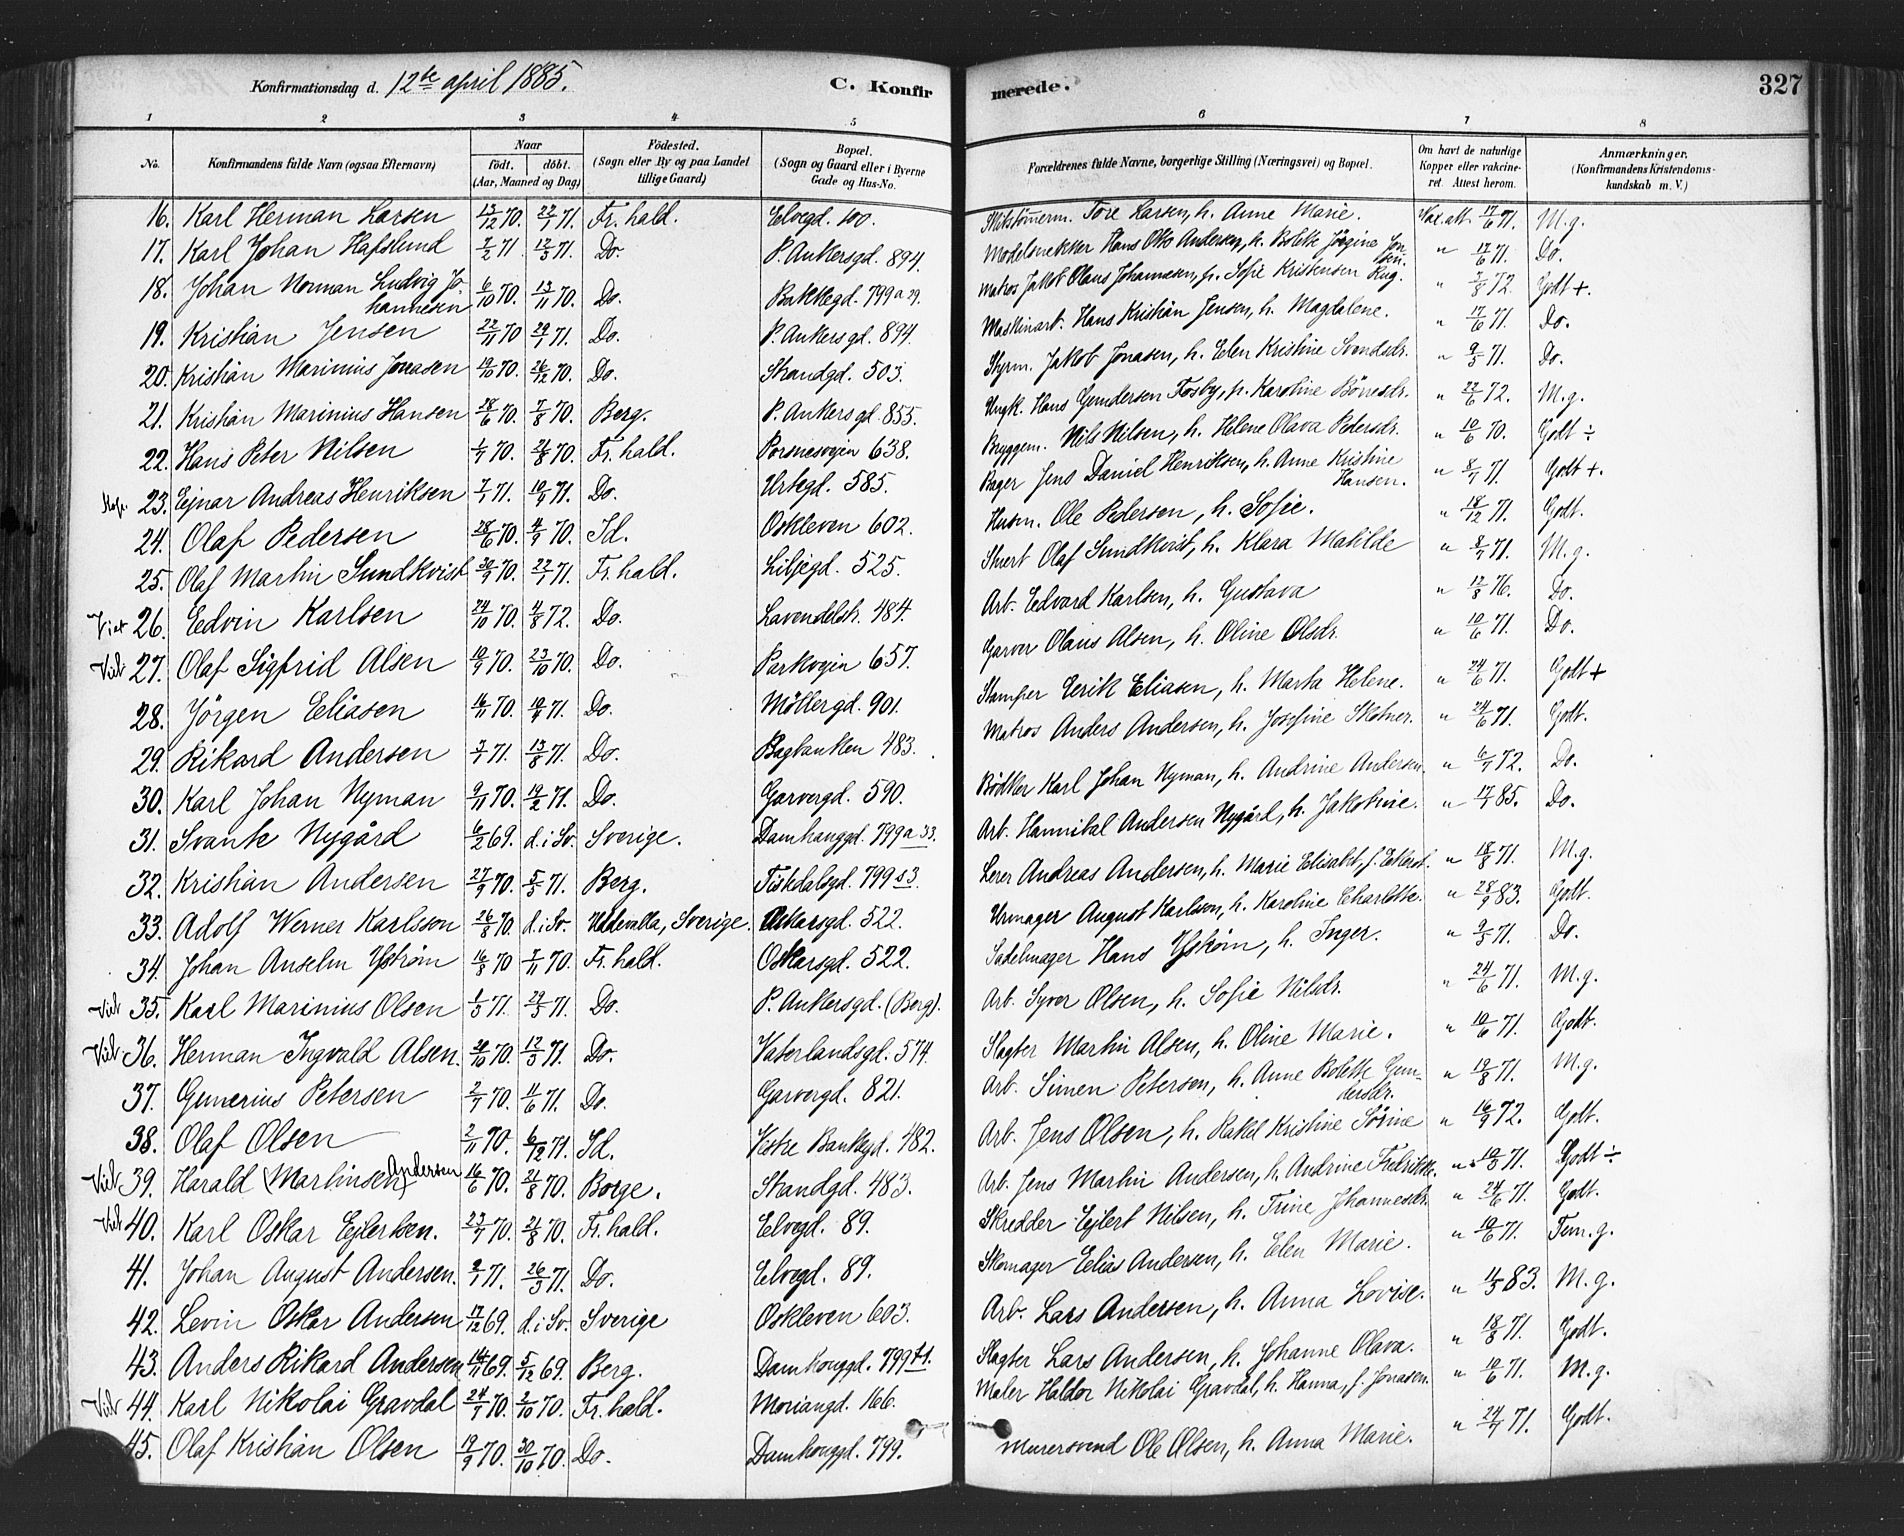 Konfirmationsdag d. 12te april 1885. C. Konfirmerede. 327
1 2 3 4 5 6 7 8
No. Konfirmandens fulde Navn (ogsaa Efternavn) Naar født. døbt. (Aar, Maaned og Dag) Fødested. (Sogn eller By og paa Landet tillige Gaard) Bopæl. (Sogn og Gaard eller i Byerne Gade og Hus-No. Forældrenes fulde Navne, borgerlige Stilling (Næringsvei) og Bopæl. Om havt de naturlige Kopper eller vakcineret. Attest herom. Anmærkninger. (Konfirmandens Kristendomskundskab m. V.)
16. Karl Herman Larsen 13/12 70. 22/1 71. Fr. hald. Elvegd. 100. Tore Larsen, h. Anne Marie. Vax. att. 17/6 71. M.g.
17. Karl Johan Hafslund 7/2 71 12/3 71. Do. P. Ankersgd. 894. Modelsnekker Hans Otto Andersen, h. Bolette Jörgine Jonsen. " 17/6 71. Do.
18. Johan Norman Ludvig Johannesen 6/10 70. 13/11 70. Do. Bakkegd. 799 a 29. Matros Jakob Olaus Johannesen, h. Sofie Kristensen " 7/8 72. Godt +.
19. Kristian Jensen 22/11 70 29/1 71. Do. P. Ankersgd. 894. Maskinarb. Hans Kristian Jensen, h. Magdalene. " 17/6 71. Do.
20. Kristian Marinius Jonasen 19/10 70. 26/12 70. Do. Strandgd. 503. Styrm. Jakob Jonasen, h. Elen Kristine Svendsdr. " 9/5 71. Do.
21. Kristian Marinius Hansen 28/6 70. 7/8 70. Berg. P. Ankersgd. 855. Ungk. Hans Gundersen Fosby, p. Karoline Börresdr. " 22/6 72. M.g.
22. Hans Peter Nilsen 1/7 70. 21/8 70. Fr. hald. 638. Bryggem. Nils Nilsen, h. Helene Olava Pedersdr. " 10/6 70. Godt ÷
23. Ejnar Andreas Henriksen 7/1 71. 10/4 71. Do. Urtegd. 585. Bager Jens Daniel Henriksen, h. Anne Kristine Hansen. " 8/7 71. Godt +.
24. Olaf Pedersen 28/6 70. 4/9 70. Id. Oskleven 602. Husm. Ole Pedersen, h. Sofie. " 18/12 71. Godt.
25. Olaf Martin Sundkvist 30/9 70. 22/1 71. Fr. hald. Liljegd. 525. Olaf Sundkvist, h. Klara Matilde " 8/7 71. M.g.
26. Edvin Karlsen 24/10 70. 4/8 72. Do. Lavendelstr. 484. Arb. Edvard Karlsen, h. Gustava " 12/8 76. Do.
27. Olaf Sigfrid Alsen 10/9 70. 23/10 70. Do. Parkvejen 657. Garver Olaus Alsen, h. Oline Olsdr. " 10/6 71. Do.
28. Jörgen Eliasen 16/11 70. 10/4 71. Do. Möllergd. 901. Stamper Eerik Eliasen, h. Marta Helene. " 24/6 71. Godt +
29. Rikard Andersen 3/1 71. 13/8 71. Do. Bagbanken 483. Matros Anders Andersen, h. Josefine Skotner. " 24/6 71. Godt.
30. Karl Johan Nyman 9/11 70. 19/2 71. Do. Garvergd. 590. Bödker Karl Johan Nyman, h. Andrine Andersen " 6/7 72. Do.
31. Svante Nygård 6/2 69. d. i Sv. Sverige. Damhauggd. 799 a 33. Arb. Hannibal Andersen Nygård, h. Jakobine. " 17/1 85. Do.
32. Kristian Andersen 27/9 70. 5/3 71. Berg. Fiskdalsgd. 799 s 3. Andreas Andersen, h. Marie Elisabet, f. " 18/8 71. M.g.
33. Adolf Werner Karlsson 26/8 70. d. i Sv. Uddevalla, Sverige. Oskarsgd. 522. Urmager August Karlson, h. Karoline Charlotte. " 28/9 83. Godt.
34. Johan Anselm Ystrøm 16/8 70 7/11 70. Fr. hald. Oskarsgd. 522. Sadelmager Hans Ystrøm, h. Inger. " 9/5 71. Do.
35. Karl Marinius Olsen 1/3 71. 29/5 71. Do. P. Ankersgd. (Berg). Arb. Syver Olsen, h. Sofie Nilsdr. " 24/6 71. M.g.
36. Herman Ingvald Alsen. 20/10 70. 12/3 71. Do. Vaterlandsgd. 574. Slagter Martin Alsen, h. Oline Marie. " 10/6 71. Godt.
37. Gunerius Petersen 2/7 70. 11/6 71. Do. Garvergd. 821. Arb. Simen Petersen, h. Anne Bolette Gundersdr. " 19/8 71. M.g.
38. Olaf Olsen 2/11 70. 6/12 71. Id. Vestre Bankegd. 482. Arb. Jens Olsen, h. Rakel Kristine Sörine " 16/9 72. Godt.
39. Harald (Martinsen) Andersen 16/6 70. 21/8 70. Borge. Strandgd. 483. Arb. Jens Martin Andersen, h. Andrine Fredrikke. " 10/3 71. Godt ÷
40. Karl Oskar Ejlertsen. 23/7 70. 21/8 70. Fr. hald. Elvegd. 89. Skredder Ejlert Nilsen, h. Trine Johannesdr. " 24/6 71. Godt.
41. Johan August Andersen. 2/1 71. 26/3 71. Do. Elvegd. 89. Skomager Elias Andersen, h. Elen Marie. " 10/6 71. Tem. g.
42. Levin Oskar Andersen 17/12 69. d. i Sv. Sverige Oskleven 603. Arb. Lars Andersen, h. Anna Lovise. " 11/5 83. M.g.
43. Anders Rikard Andersen 14/11 69. 5/12 69. Berg. Damhauggd. 799 t 1. Slagter Lars Andersen, h. Johanne Olava. " 18/8 71. Godt.
44. Karl Nikolai Gravdal 24/7 70. 2/10 70. Fr. hald. Moriangd. 166. Maler Haldor Nikolai Gravdal, h. Hanna, f. Jonasen. " 10/6 71. M.g.
45. Olaf Kristian Olsen 19/9 70. 30/10 70. Do. Damhauggd. 799. Murersvend Ole Olsen, h. Anna Marie. " 24/7 71. Godt.